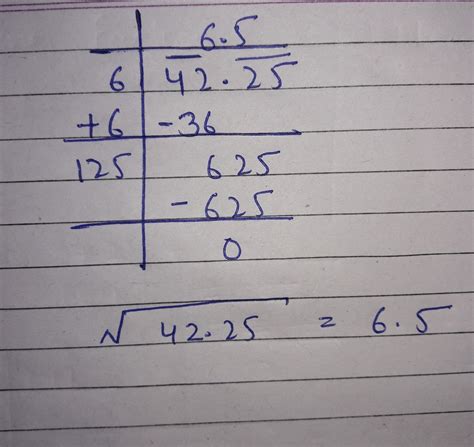 6.5
6 42.25
+6 -36
125 625
-625
0
√42.25 = 6.5